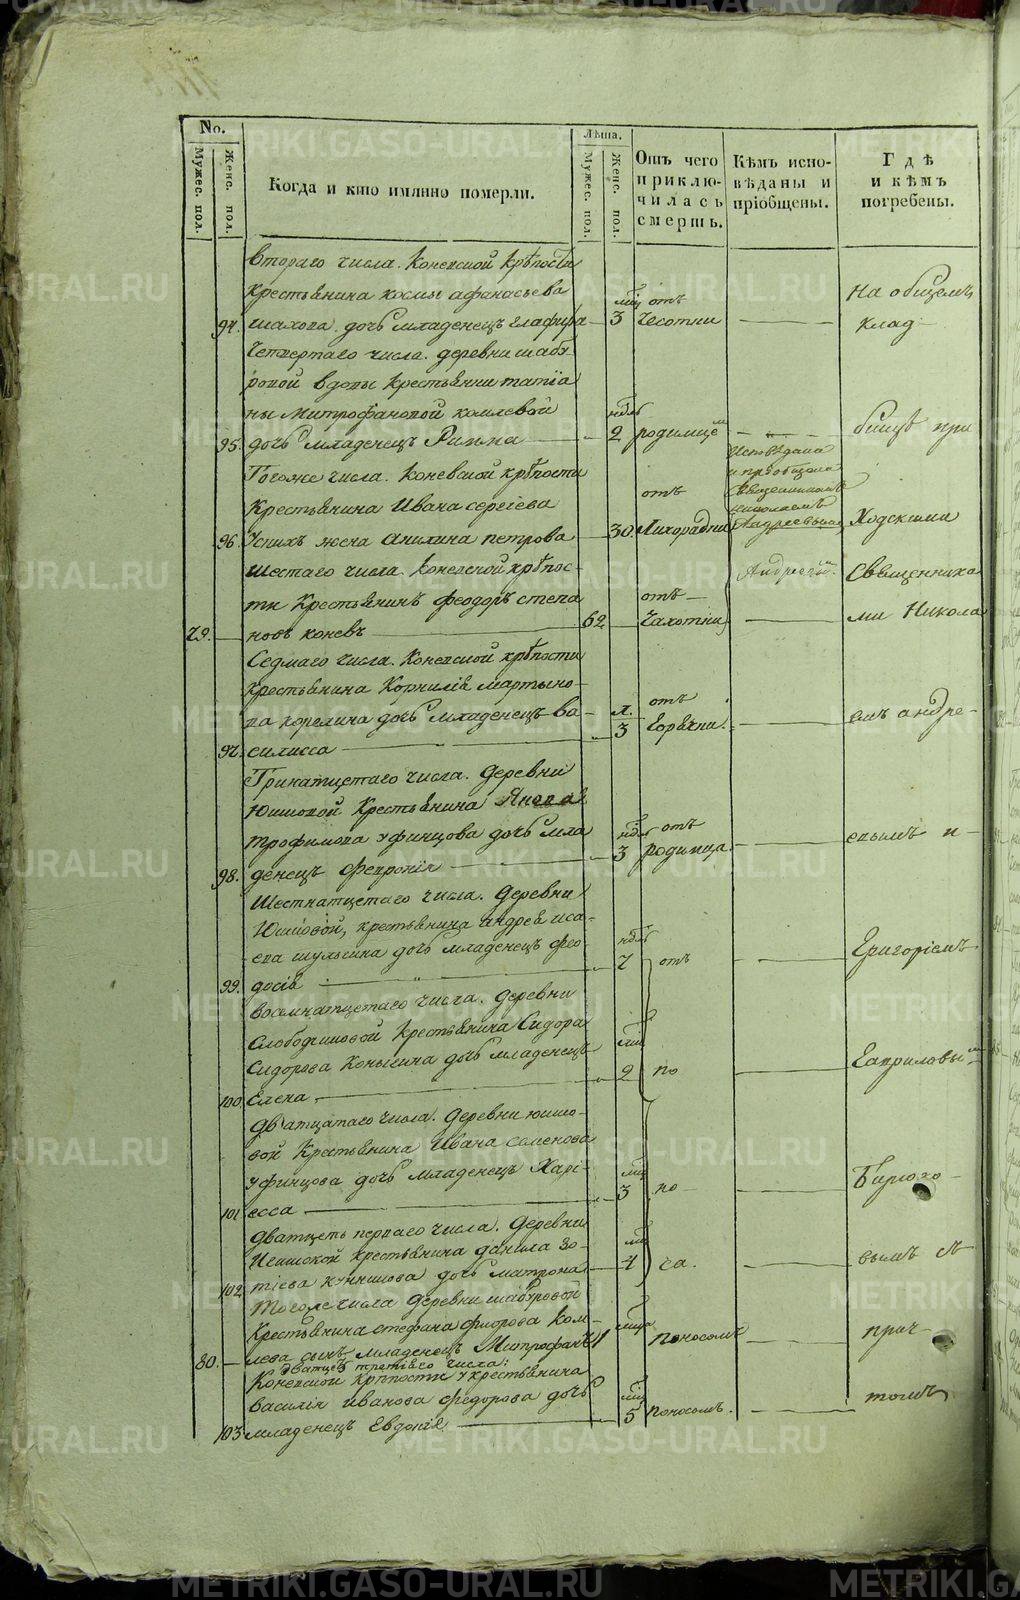 No.
Мужес. пол.
Женс. пол.
Когда и кто имянно померли.
Лѣта.
Мужес. пол.
Женс. пол.
Отъ чего приклю-чилась смерть.
Кѣмъ испо-вѣданы и пріобщены.
Гдѣ и кѣмъ погребены.
втораго числа. Коневской крѣпости
крестьянина космы афанасьева
94. шахова дочь младенецъ глафира 3 мца отъ чесотки На общемъ клад-
четвертаго числа. деревни шабу
ровой вдовы крестьянки татіа
ны Митрофановой комлевой
95. дочь младенецъ Римма 2 нд родимце бищѣ при
Тогоже числа. Коневской крѣпости
крестьянина Ивана сергіева
96. жена Акилина петрова 30. отъ Лихорадки Исповѣдана и пріобщена священникомъ николаемъ Андреевымъ Ходскими
шестаго числа. Коневской крѣпос-
ти Крестьянинъ феодоръ степа
79. новъ коневъ 62 отъ чахотки Андреевы священника ми Никола
Седмаго числа. Коневской крѣпости
крестьянина Корнилія мартыно-
ва корелина дочь младенецъ ва-
97. силисса 3 отъ горячки. емъ андре-
Тринатцетаго числа. деревни
Юшковой Крестьянина Якова
трофимова уфинцова дочь мла
98. денецъ Феврониа 3 нд отъ родимца. евымъ и-
Шестнатцетаго числа. деревни
Юшковой, крестьянина андрея иса-
ева шульгина дочь младенецъ фео-
99. досія 7 нд отъ Григоріемъ
восемнатцетаго числа. деревни
Слободчиковой крестьянина Сидора
Сидорова Коныгина дочь младенецъ
100. Елена 2 мц по Гавриловы
Дватцатаго числа. деревни юшко-
вой Крестьянина Ивана семенова
уфинцова дочь младенецъ Харі-
101 есса 3 мц но Бирюко-
дватцеть перваго числа. деревни
крестьянина данила зо-
102 тіева дочь матрона 1 са. вымъ съ
тогоже числа деревни шабуровой
крестьянина стефана флорова ком-
80. лева сынъ младенецъ Митрофанъ 1 мца поносомъ прич-
дватцеть третьяго числа:
Коневской крѣпости крестьянина
василія Иванова федорова дочь
103 младенецъ Евдокія 5 мц поносомъ. томъ